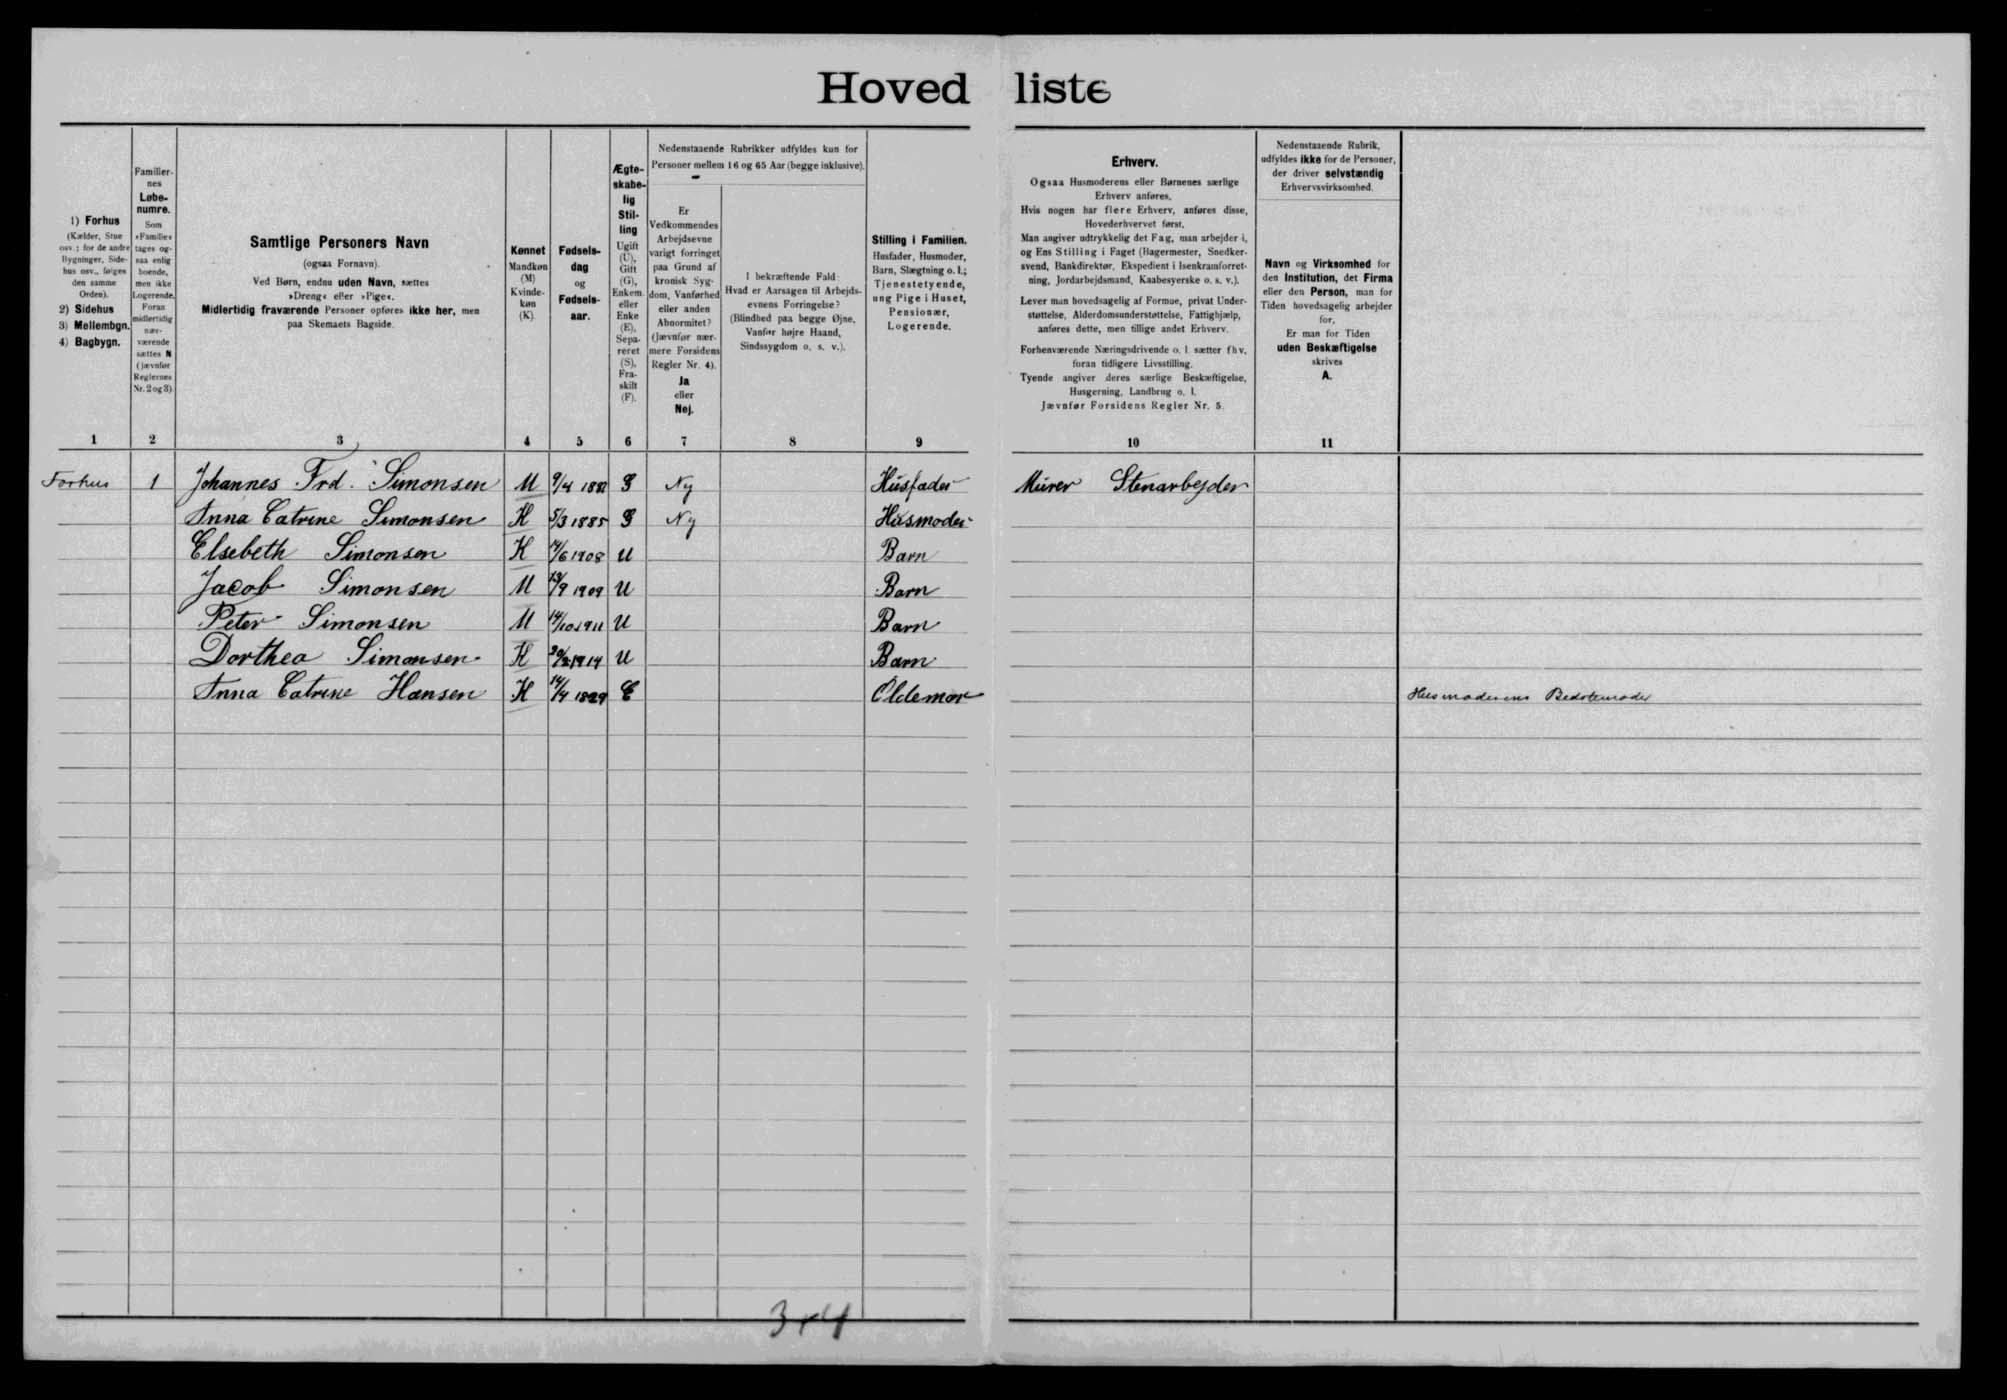 Hoved liste
1) Forhus
(Kælder, Stue
osv.; for de andre
Bygninger, Side-
hus osv., følges
den samme
Orden).
2) Sidehus
3) Mellembgn.
4) Bagbygn.
Familier-
nes
Løbe-
numre.
Som
»Familie«
tages og-
saa enlig
boende,
men ikke
Logerende.
Foran
midlertidig
nær-
værende
sættes N
(jævnfør
Reglernes
Nr. 2 og 3).
Samtlige Personers Navn
(ogsaa Fornavn).
Ved Børn, endnu uden Navn, sættes
»Dreng« eller »Pige«.
Midlertidig fraværende Personer opføres ikke her, men
paa Skemaets Bagside.
Kønnet
Mandkøn
(M)
Kvinde-
køn
(K).
Fødsels-
dag
og
Fødsels-
aar.
Ægte-
skabe-
lig
Stil-
ling
Ugift
(U),
Gift
(G),
Enkem.
eller
Enke
(E),
Sepa-
reret
(S),
Fra-
skilt
(F).
Nedenstaaende Rubrikker udfyldes kun for
Personer mellem 16 og 65 Aar (begge inklusive).
Er
Vedkommendes
Arbejdsevne
varigt forringet
paa Grund af
kronisk Syg-
dom, Vanførhed
eller anden
Abnormitet?
(Jævnfør nær-
mere Forsidens
Regler Nr. 4).
Ja
eller
Nej.
I bekræftende Fald:
Hvad er Aarsagen til Arbejds-
evnens Forringelse?
(Blindhed paa begge Øjne,
Vanfør højre Haand,
Sindssygdom o. s. v.).
Stilling i Familien.
Husfader, Husmoder,
Barn, Slægtning o. l.;
Tjenestetyende,
ung Pige i Huset,
Pensionær,
Logerende.
Erhverv.
Ogsaa Husmoderens eller Børnenes særlige
Erhverv anføres.
Hvis nogen har flere Erhverv, anføres disse,
Hovederhvervet først.
Man angiver udtrykkelig det Fag, man arbejder i,
og Ens Stilling i Faget (Bagermester, Snedker-
svend, Bankdirektør, Ekspedient i Isenkramforret-
ning, Jordarbejdsmand, Kaabesyerske o. s. v.).
Lever man hovedsagelig af Formue, privat Under-
støttelse, Alderdomsunderstøttelse, Fattighjælp,
anføres dette, men tillige andet Erhverv.
Forhenværende Næringsdrivende o. l. sætter fhv.
foran tidligere Livsstilling.
Tyende angiver deres særlige Beskæftigelse,
Husgerning, Landbrug o. l.
Jævnfør Forsidens Regler Nr. 5.
Nedenstaaende Rubrik,
udfyldes ikke for de Personer,
der driver selvstændig
Erhvervsvirksomhed.
Navn og Virksomhed for
den Institution, det Firma
eller den Person, man for
Tiden hovedsagelig arbejder
for.
Er man for Tiden
uden Beskæftigelse
skrives
A.
1 2 3 4 5 6 7 8 9 10 11
Forhus 1 Johannes Frd. Simonsen M 9/4 1882 G Nej Husfader Murer Stenarbejder
Anna Catrine Simonsen K 5/3 1885 G Nej Husmoder
Elsebeth Simonsen K 14/6 1908 U Barn
Jacob Simonsen M 13/9 1909 U Barn
Peter Simonsen M 14/10 1911 U Barn
Dorthea Simonsen K 20/2 1914 U Barn
Anna Catrine Hansen K 14/4 1829 E Oldemor Husmoderens Bedstemoder
3+4